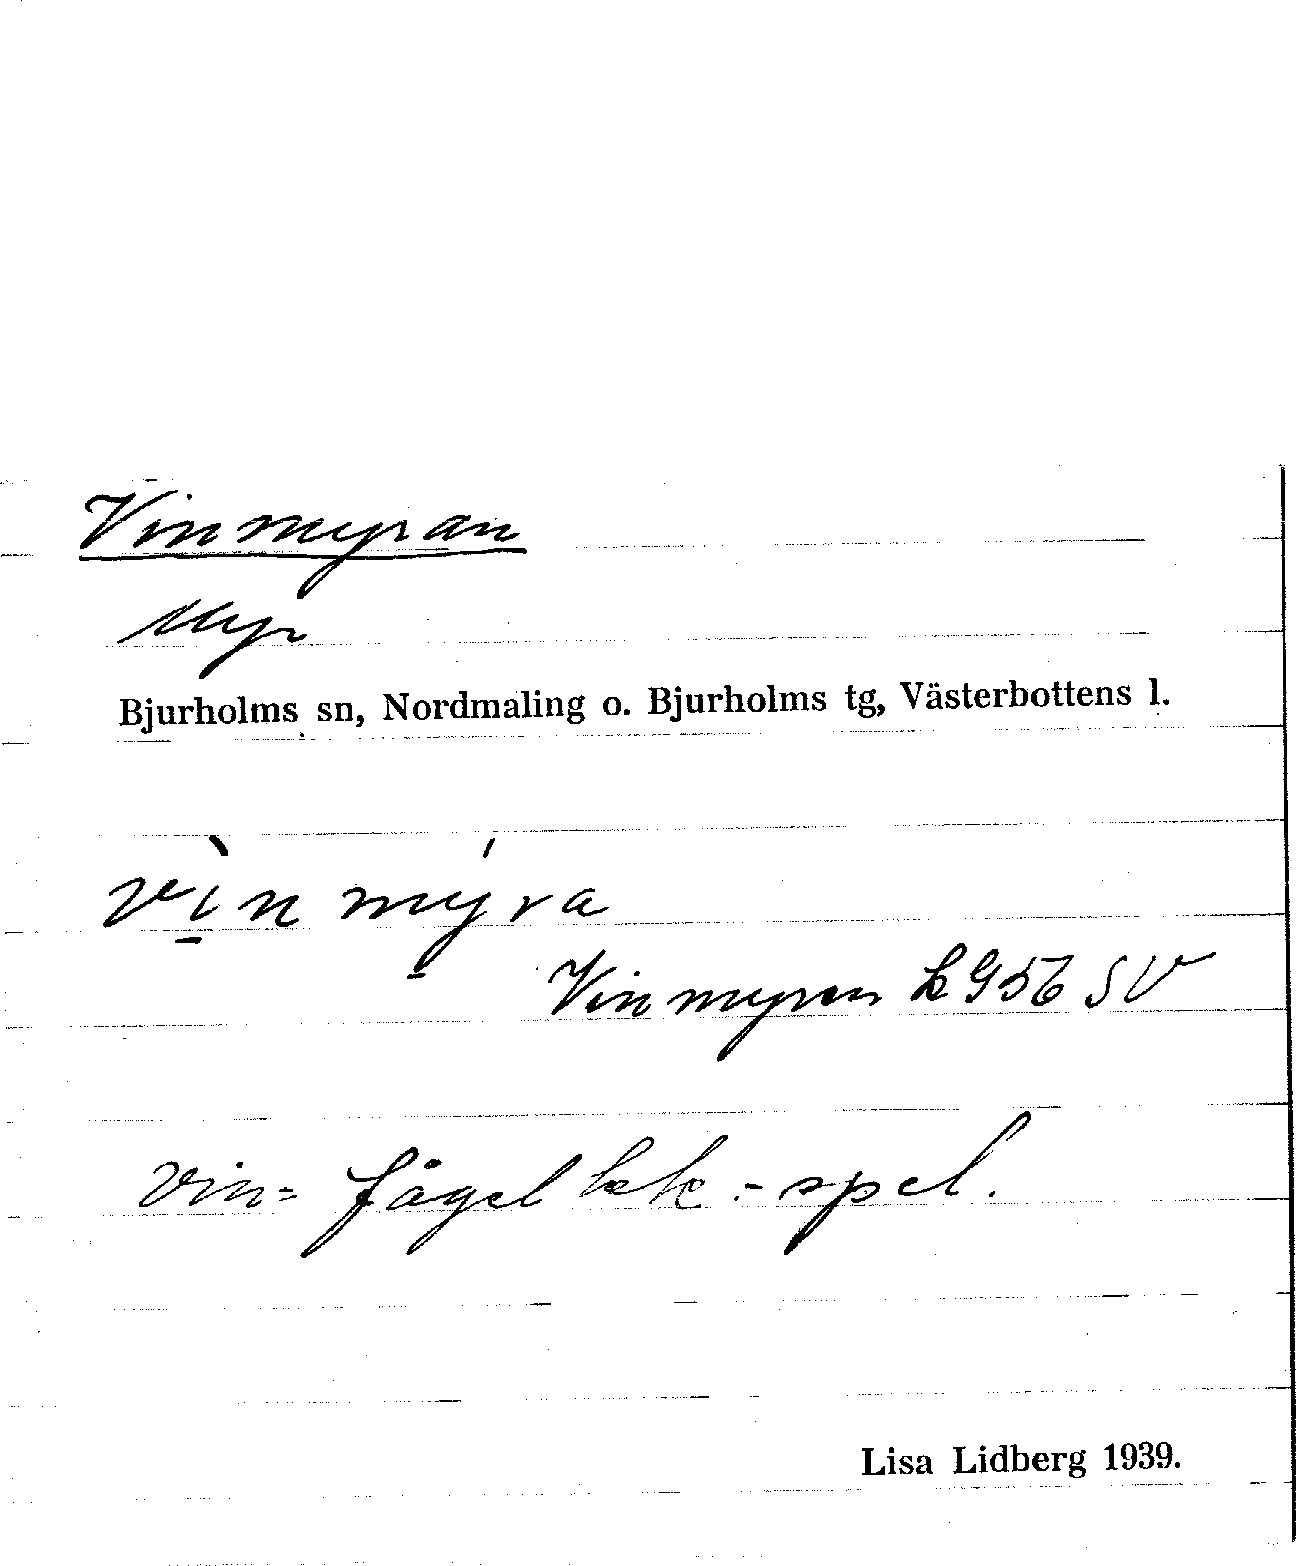 Vinmyran
Myr
Bjurholms sn, Nordmaling o. Bjurholms tg, Västerbottens l.
vìn mýra
Vinmyran k 956 SV
vin = fågellek - spel.
Lisa Lidberg 1939.